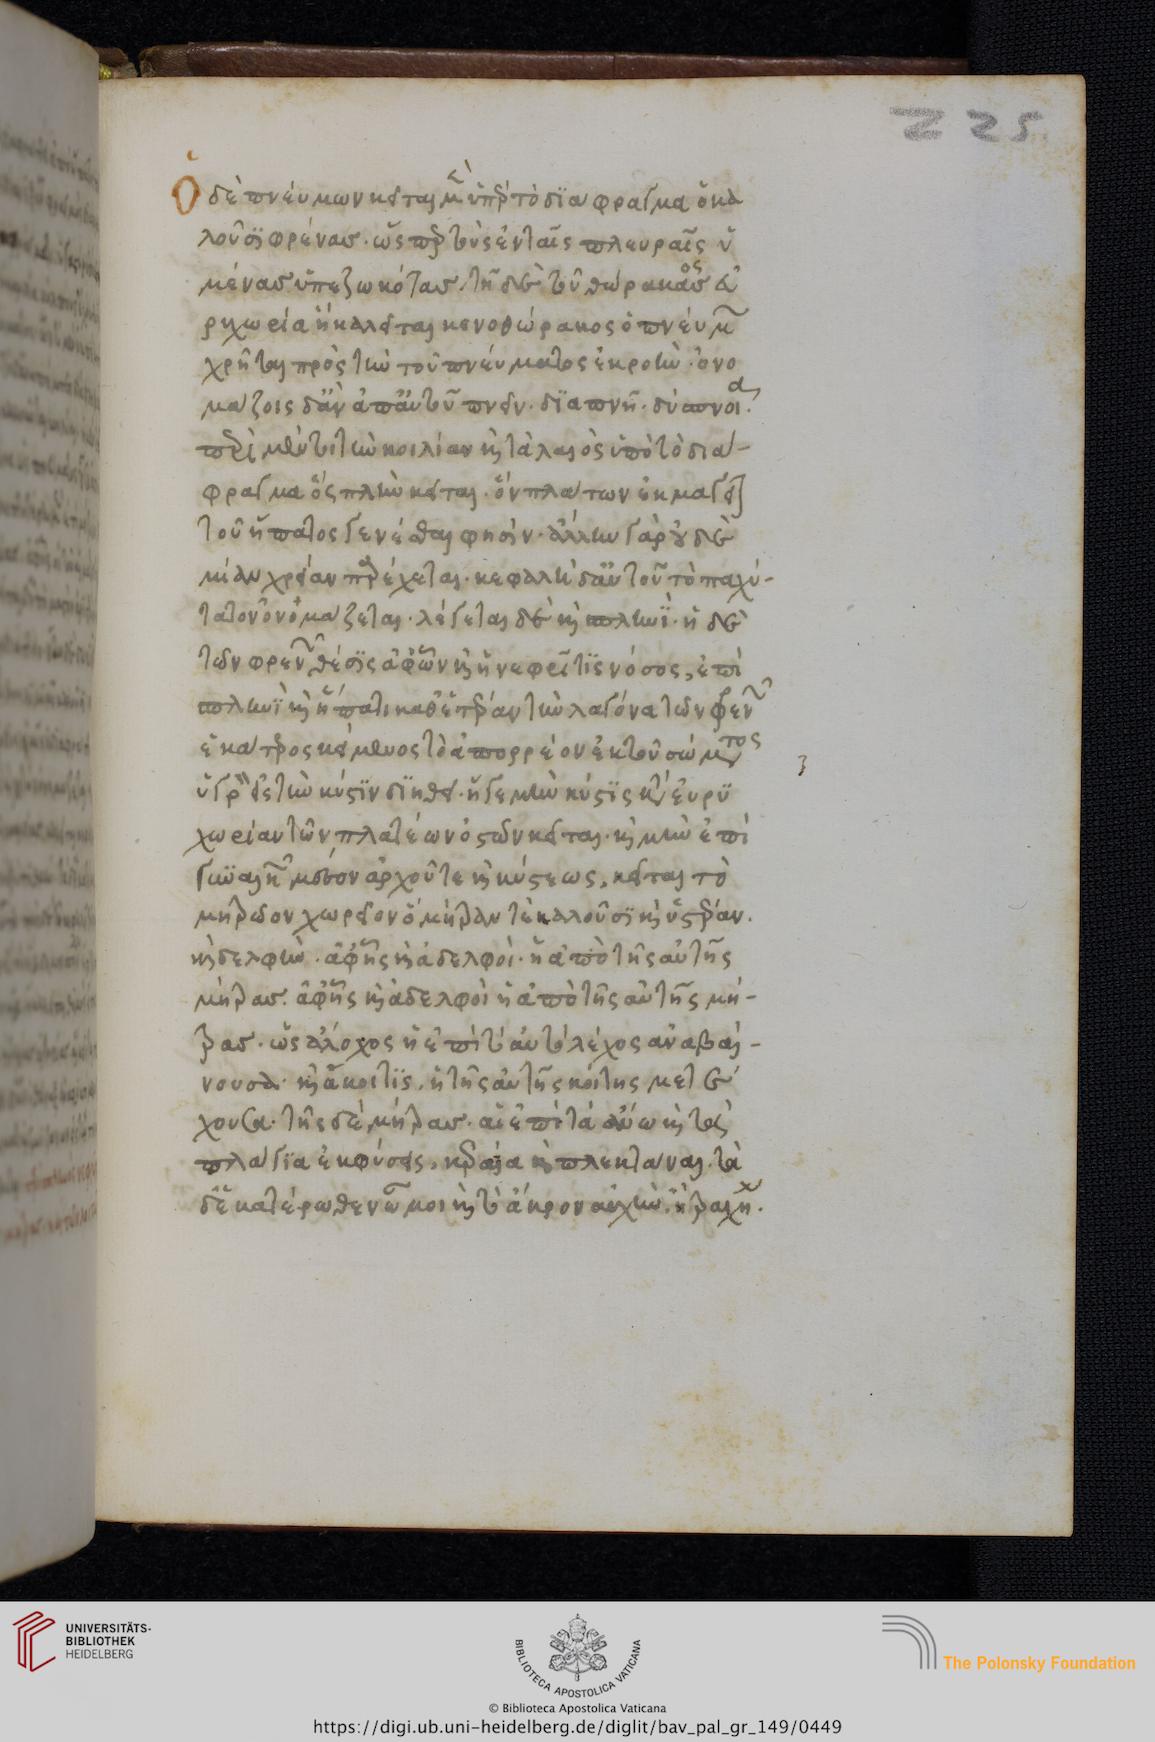 225
Ὁ δὲ πνεύμων κεῖται μὲν ὑπὲρ τὸ διάφραγμα ὃ κα
λοῦσι φρένας. ὡς περ τοὺς ἐν ταῖς πλευραῖς ὑ
μένας ὑπεζωκότας. τῇ δὲ τοῦ θώρακος εὐ
ρυχωρία ἣ καλεῖται κενοθώρακος ὁ πνεύμων
χρῆται πρὸς τὴν τοῦ πνεύματος ἐκροὴν. ὀνο
μάζοις δ' ἂν ἀπ' αὐτοῦ πνεῖν. διαπνεῖν. δύσπνοια.
περὶ μὲν τοι τὴν κοιλίαν καὶ τὰ λαιὸς ὑπὸ τὸ διά-
φραγμα ὁ σπλὴν κεῖται. ὃν πλάτων ἐκμαγεῖον
τοῦ ἥπατος γενέσθαι φησίν. ἄλλην γὰρ οὐδὲ
μίαν χρείαν παρέχεται. κεφαλὴ δ' αὐτοῦ τὸ παχύ-
τατον ὀνομάζεται. λέγεται δὲ καὶ σπλὴν. ἡ δὲ
τῶν φρενῶν θέσις ἀφ' ὧν καὶ ἡ νεφρῖτις νόσος, ἐπὶ
σπληνὶ καὶ ἥπατι καθ' ἑτέραν τὴν λαγόνα τῶν φρενῶν
ἑκάτερος κείμενος τὸ ἀπορρέον ἐκ τοῦ σώματος
ὑγρὸν εἰς τὴν κύστιν διηθεῖ. ἥ γε μὴν κύστις κατ' εὐρυ
χωρίαν τῶν πλατέων ὀστῶν κεῖται. καὶ μὴν ἐπὶ
γυναικῶν μέσον ἀρχοῦ τε καὶ κύστεως, κεῖται τὸ
μητρῷον χωρεῖον ὃ μήτραν τὲ καλοῦσι καὶ ὑστέραν.
καὶ δελφὺν. ἀφ' ἧς καὶ ἀδελφοὶ. ἢ ἀπὸ τῆς αὐτῆς
μήτρας. ἀφ' ἧς καὶ ἀδελφοὶ ἢ ἀπὸ τῆς αὐτῆς μή-
τρας. ὡς ἄλοχος ἡ ἐπὶ τὸ αὐτὸ λέχος ἀναβαί-
νουσα. καὶ ἄκοιτις, ἡ τῆς αὐτῆς κοίτης μετέ
χουσα. τῆς δὲ μήτρας. αἱ ἐπὶ τὰ ἄνω καὶ τὰ
πλάγια ἐκφύσεις, κεραῖα καὶ πλεκτάναι. τὰ
δ' ἑκατέρωθεν ὦμοι καὶ τὸ ἄκρον αὐχὴν. ἢ τράχηλος.
UNIVERSITÄTS-
BIBLIOTHEK
HEIDELBERG
BIBLIOTECA APOSTOLICA VATICANA
The Polonsky Foundation
© Biblioteca Apostolica Vaticana
https://digi.ub.uni-heidelberg.de/diglit/bav_pal_gr_149/0449